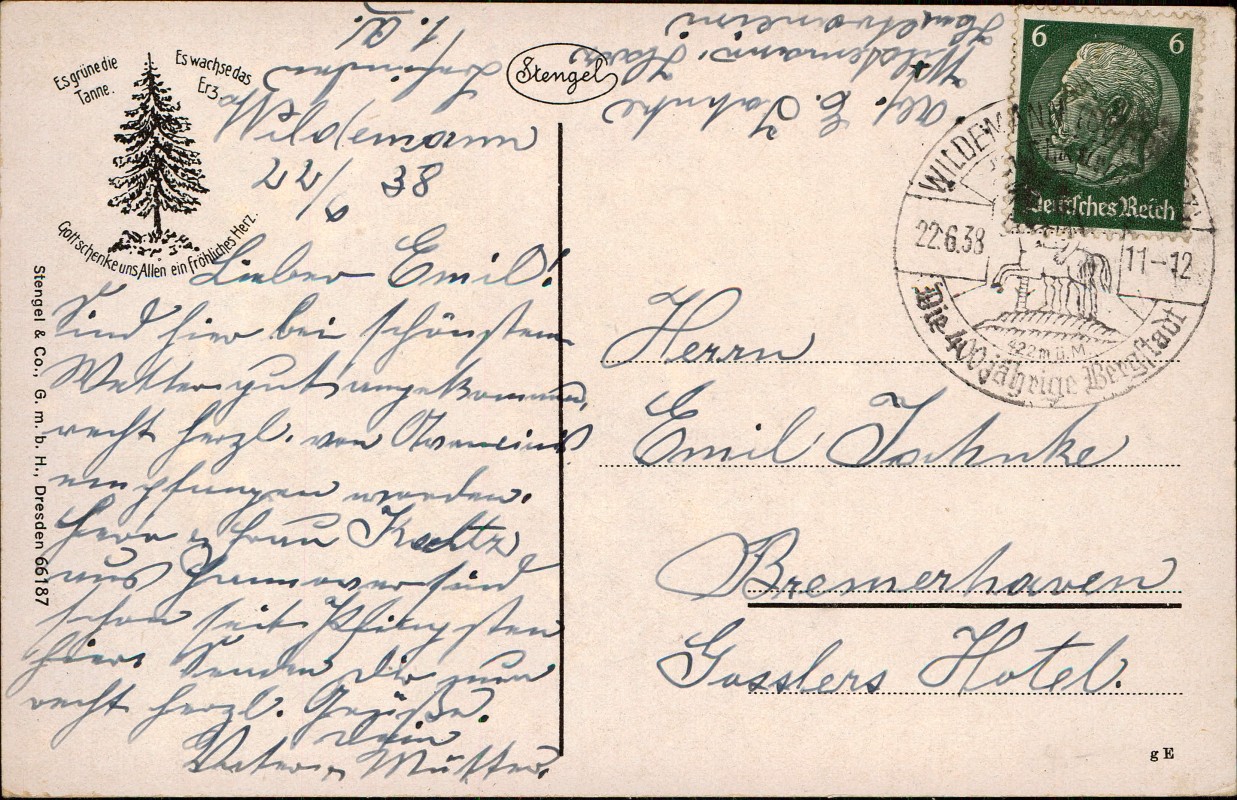 Es grüne die
Tanne.
Es wachse das
Erz
Gott schenke uns Allen ein fröhliches Herz.
Stengel
Stengel & Co., G. m. b. H., Dresden 66187
Wildemann
22/6 38
Lieber Emil!
Sind hier bei schönstem
Wetter gut angekommen,
recht herzl. von
empfangen worden.
Herr u Frau
aus Hannover sind
schon seit Pfingsten
hier. Senden Dir nun
recht herzl. Grüße.
Dein
Vater u. Mutter.
Abs. E. Jahnke
Wildemann. Harz
6 6
Deutsches Reich
WILDEMANN
22.6.38
11-12
422 m ü. M.
Die 400 jährige Bergstadt
Herrn
Emil Jahnke
Bremerhaven
Gosslers Hotel.
g E